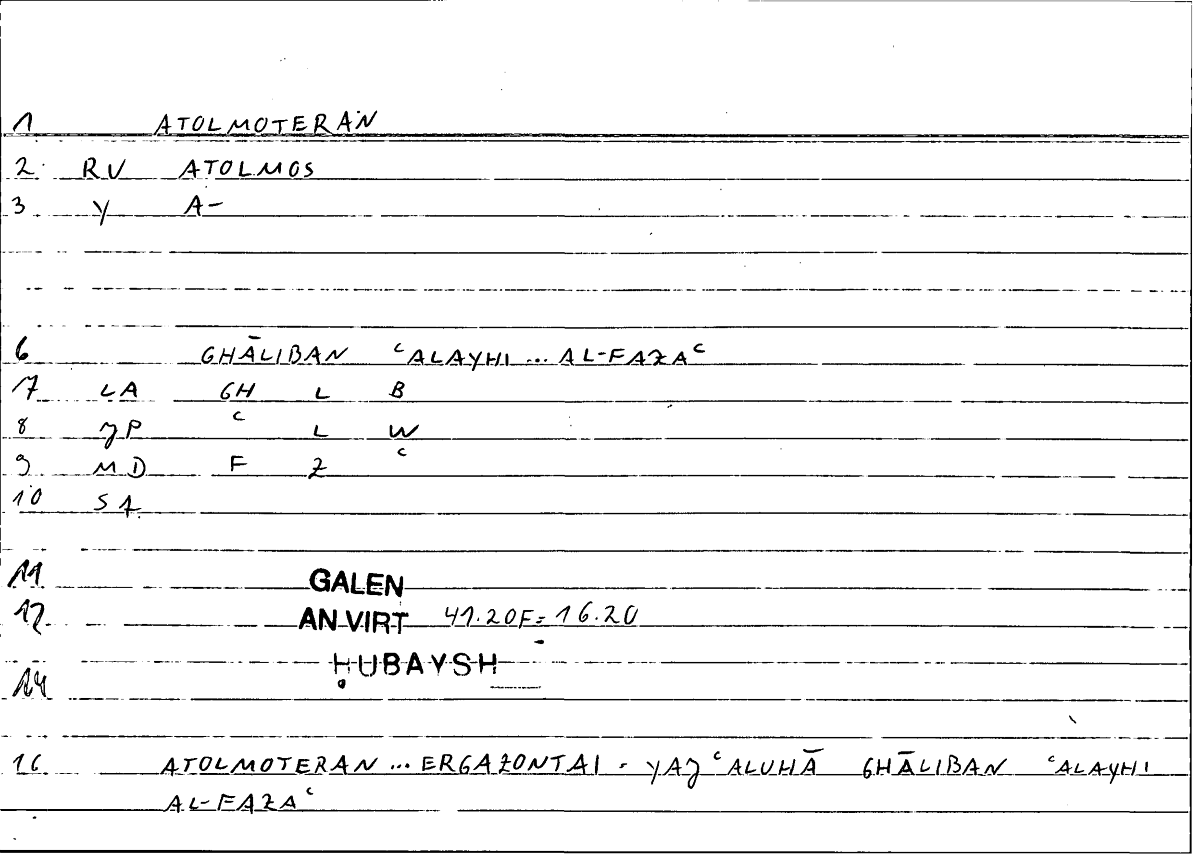 1 ATOLMOTERAN
2 RV ATOLMOS
3 Y A-
6 GHĀLIBAN ʿALAYHI ... AL-FAZAʿ
7 LA GH L B
8 JP ʿ L W
9 MD F Z ʿ
10 SA
11 GALEN
12 AN.VIRT 41.20F = 16.20
ḤUBAYSH
14
16 ATOLMOTERAN ... ERGAZONTAI - YAJʿALUHĀ GHĀLIBAN ʿALAYHI
AL-FAZAʿ